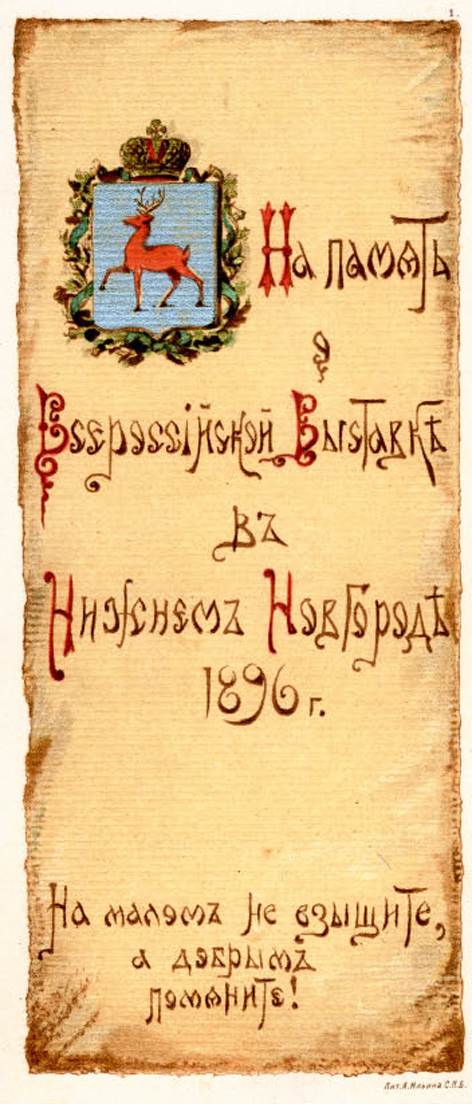 1.
На память
о
Всероссійской Выставкѣ
въ
Нижнемъ Новгородѣ
1896 г.
На маломъ не взыщите,
а добрымъ
помяните!
Лит. А. Ильина С.П.Б.